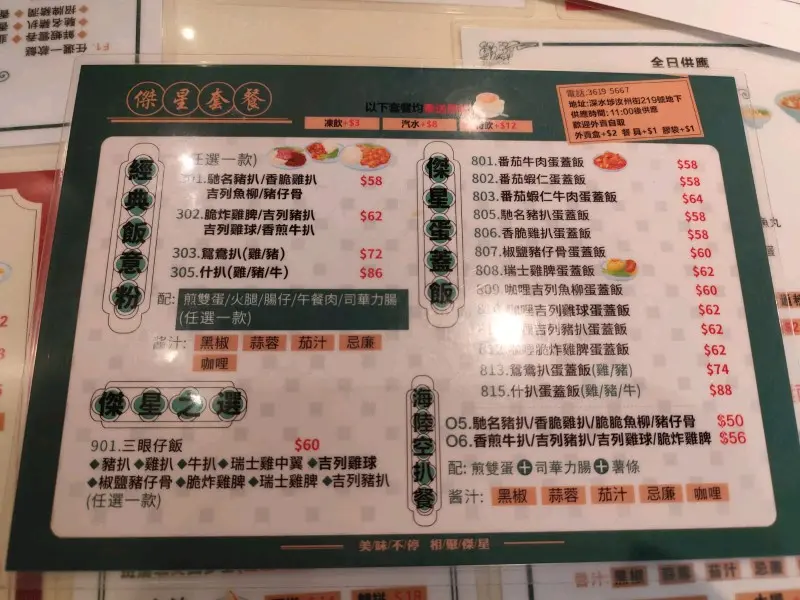 全日供應
傑星套餐
以下套餐均
凍飲+$3
汽水+$8
+$12
電話:3619 5667
地址:深水埗汝州街219號地下
供應時間:11:00後供應
歡迎外賣自取
外賣盒+$2 餐具+$1 膠袋+$1
經典飯意粉
(任選一款)
301.馳名豬扒/香脆雞扒 $58
吉列魚柳/豬仔骨
302.脆炸雞脾/吉列豬扒 $62
吉列雞球/香煎牛扒
303.鴛鴦扒(雞/豬) $72
305.什扒(雞/豬/牛) $86
配: 煎雙蛋/火腿/腸仔/午餐肉/司華力腸
(任選一款)
醬汁: 黑椒 蒜蓉 茄汁 忌廉
咖哩
傑星之選
901.三眼仔飯 $60
◆豬扒 ◆雞扒 ◆牛扒 ◆瑞士雞中翼 ◆吉列雞球
◆椒鹽豬仔骨 ◆脆炸雞脾 ◆瑞士雞脾 ◆吉列豬扒
(任選一款)
傑星蛋蓋飯
801.番茄牛肉蛋蓋飯 $58
802.番茄蝦仁蛋蓋飯 $58
803.番茄蝦仁牛肉蛋蓋飯 $64
805.馳名豬扒蛋蓋飯 $58
806.香脆雞扒蛋蓋飯 $58
807.椒鹽豬仔骨蛋蓋飯 $60
808.瑞士雞脾蛋蓋飯 $62
809.咖哩吉列魚柳蛋蓋飯 $60
吉列雞球蛋蓋飯 $62
吉列豬扒蛋蓋飯 $62
脆炸雞脾蛋蓋飯 $62
813.鴛鴦扒蛋蓋飯(雞/豬) $74
815.什扒蛋蓋飯(雞/豬/牛) $88
海陸空扒餐
O5.馳名豬扒/香脆雞扒/脆脆魚柳/豬仔骨 $50
O6.香煎牛扒/吉列豬扒/吉列雞球/脆炸雞脾 $56
配: 煎雙蛋+司華力腸+薯條
醬汁: 黑椒 蒜蓉 茄汁 忌廉 咖哩
美/味/不/停 相/聚/傑/星